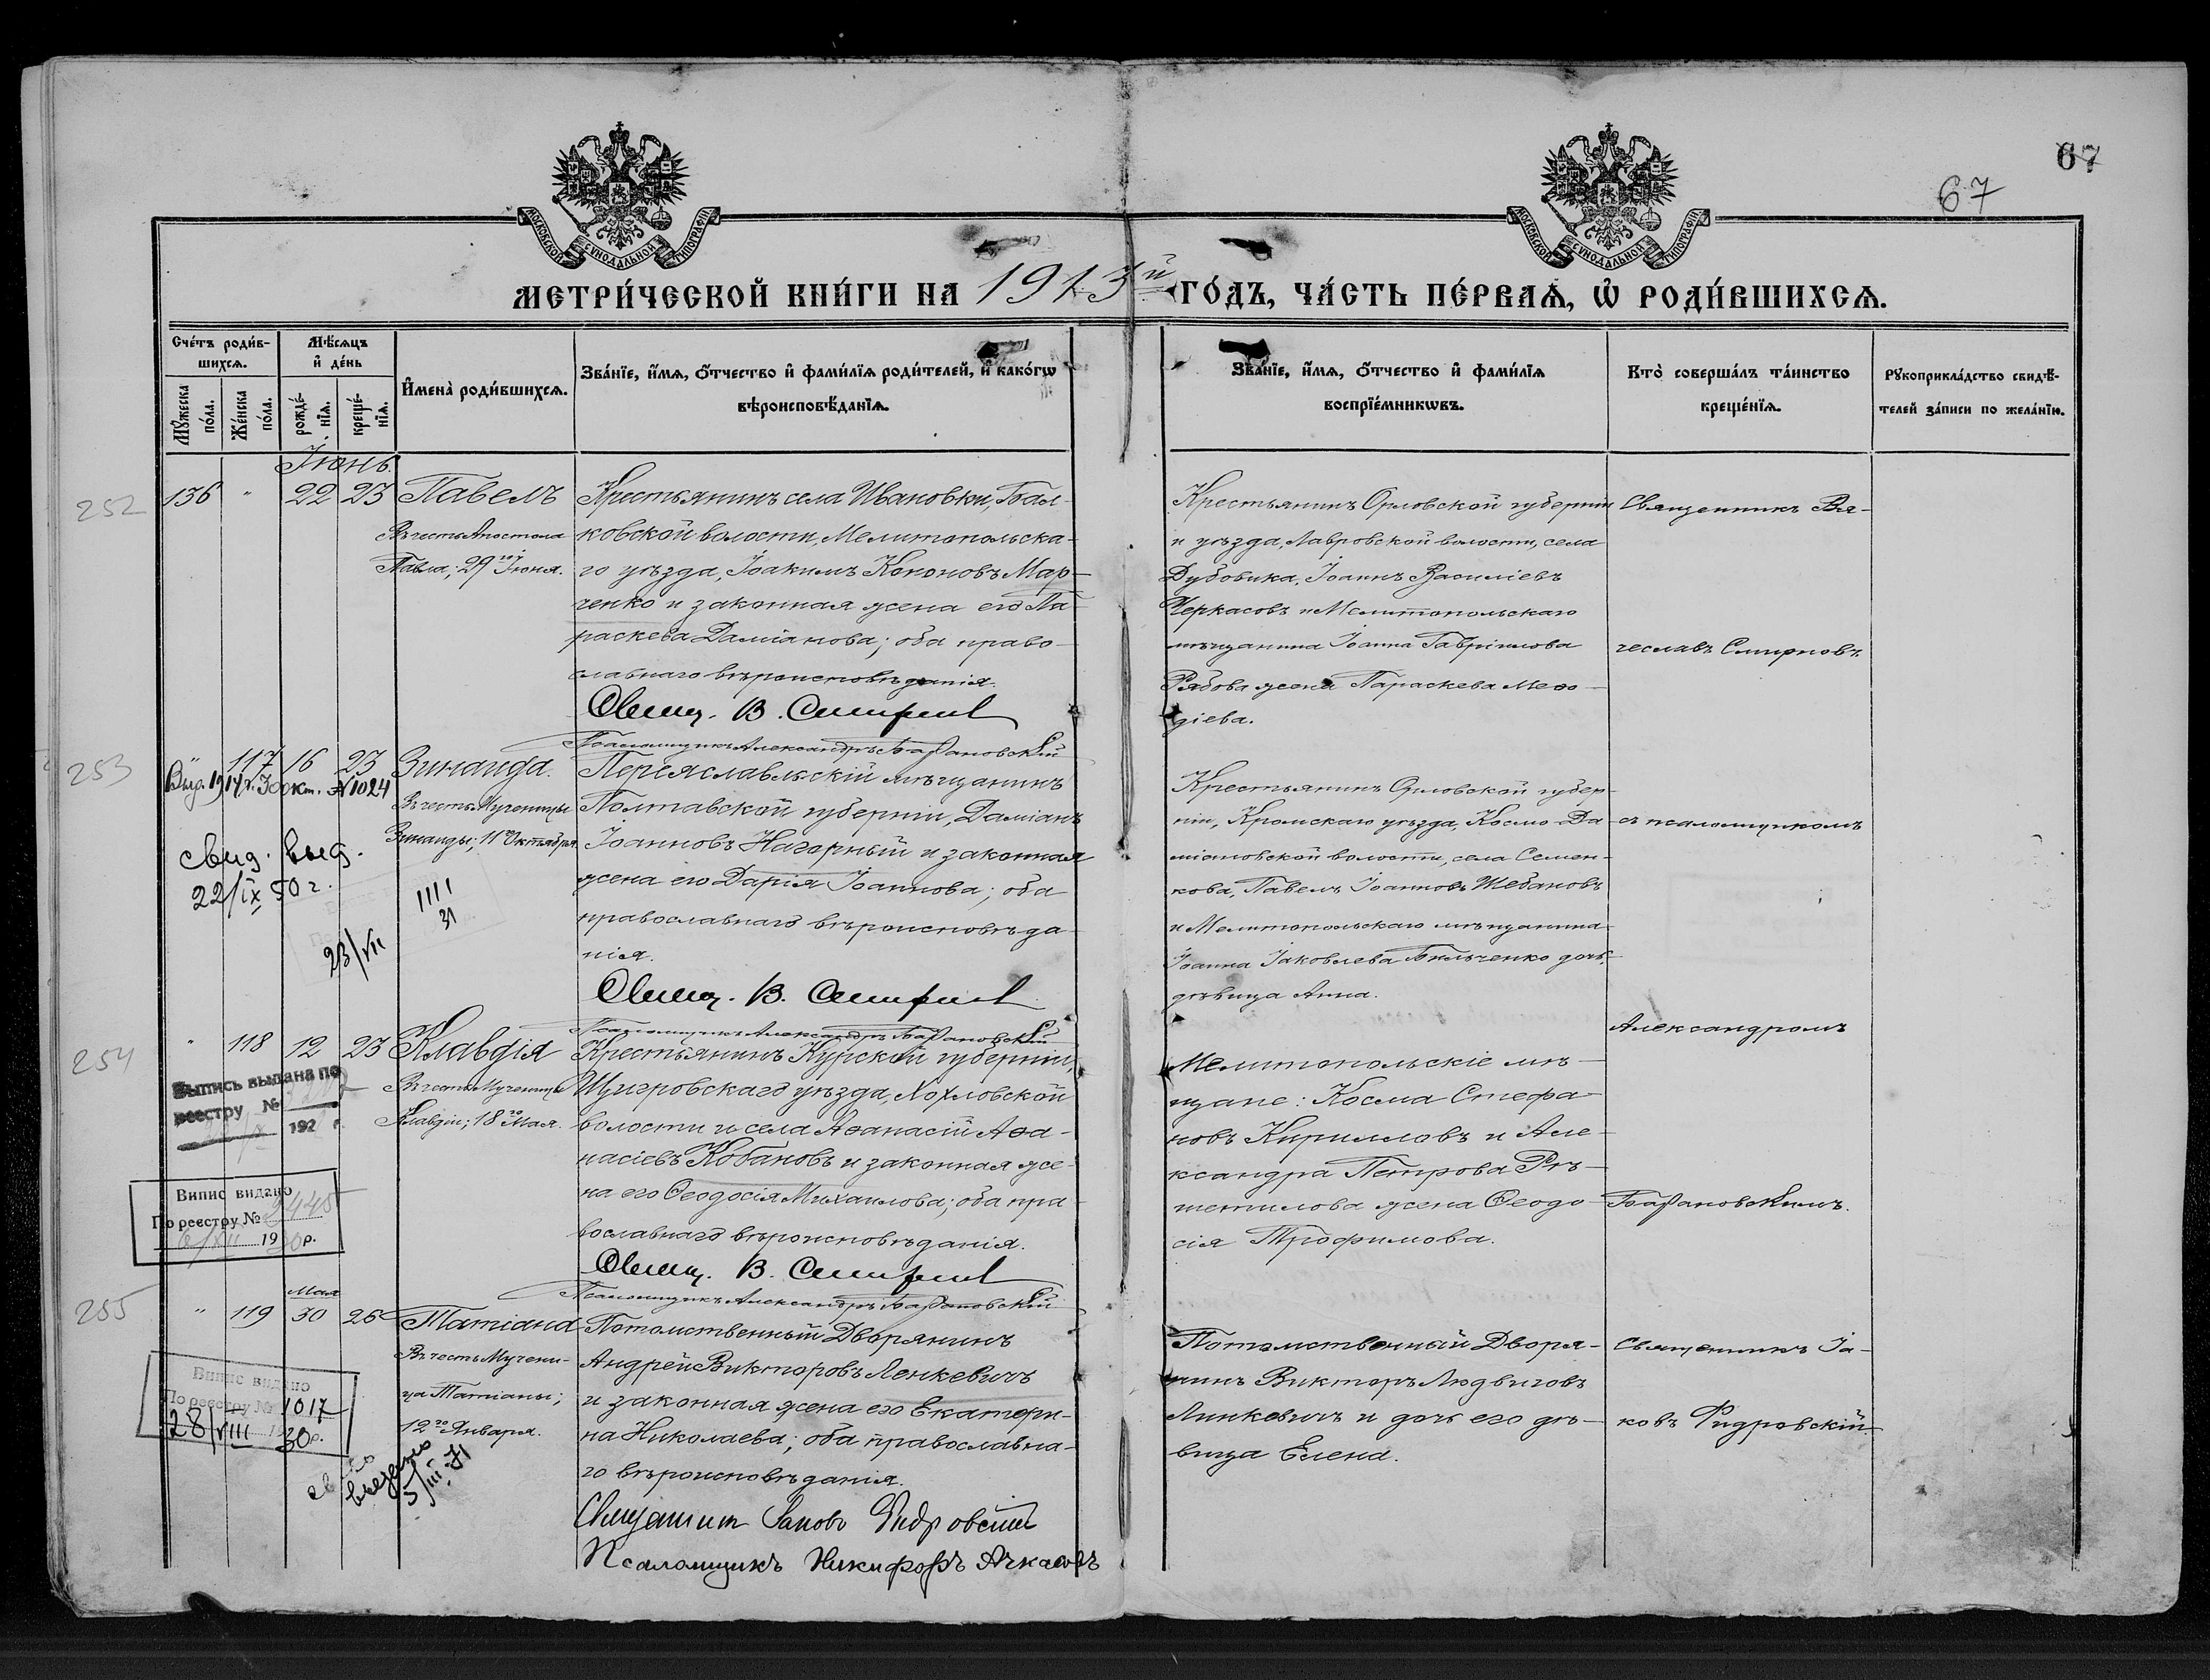 67
67
МОСКОВСКОЙ СѴНОДАЛЬНОЙ ТИПОГРАФІИ
МОСКОВСКОЙ СѴНОДАЛЬНОЙ ТИПОГРАФІИ
МЕТРИ́ЧЕСКОЙ КНИ́ГИ НА 1913й ГО́ДЪ, ЧА́СТЬ ПЕ́РВАѦ, Ѡ҆ РОДИ́ВШИХСѦ.
Сче́тъ роди́в-
шихсѧ.
Мꙋ́жеска по́ла.
Же́нска по́ла.
Мѣ́сѧцъ
и҆ де́нь
рожде́-
нїѧ.
креще́-
нїѧ.
И҆мена̀ роди́вшихсѧ.
Зва́нїе, и҆́мѧ, ѻ҆́тчество и҆ фами́лїѧ роди́телей, и҆ како́гѡ
вѣроисповѣ́данїѧ.
Зва́нїе, и҆́мѧ, ѻ҆́тчество и҆ фами́лїѧ
воспрїе́мникѡвъ.
Кто̀ соверша́лъ та́инство
креще́нїѧ.
Рꙋкоприкла́дство свидѣ́-
телей за́писи по жела́нїю.
Іюнь.
252
136 " 22 23
Павелъ
Въ честь Апостола
Павла; 29го Іюня.
Крестьянинъ села Ивановки, Бал-
ковской волости, Мелитопольска-
го уѣзда, Іоакимъ Кононовъ Мар-
ченко и законная жена его Па-
раскева Даміанова; оба право-
славнаго вѣроисповѣданія.
Свящ. В. Смирнов
Псаломщикъ Александръ Барановскій
Крестьянинъ Орловской губерніи
и уѣзда, Лавровской волости, села
Дубовика, Іоаннъ Василіевъ
Черкасовъ и Мелитопольскаго
мѣщанина Іоанна Гавріилова
Рябова жена Параскева Мефо-
діева.
Священникъ Вя-
чеславъ Смирновъ
253
" 117 16 23
Выд. 1914 г. 30 окт. №1024
свид. выд.
22/IX 50 г.
23/VII
1111
31
Зинаида.
Въ честь Мученицы
Зинаиды; 11го Октября
Переяславльскій мѣщанинъ
Полтавской губерніи, Даміанъ
Іоанновъ Нагорный и законная
жена его Дарія Іоаннова; оба
православнаго вѣроисповѣда-
нія.
Свящ. В. Смирнов
Псаломщикъ Александръ Барановскій
Крестьянинъ Орловской губер-
ніи, Кромскаго уѣзда, Космо-Да-
міановской волости, села Семен-
кова, Павелъ Іоанновъ Шебановъ
и Мелитопольскаго мѣщанина
Іоанна Іаковлева Бильченко дочь,
дѣвица Анна.
съ псаломщикомъ
254
" 118 12 23
Выпись выдана по
реестру №
192 г.
Випис видано
По реєстру № 3445
6/XII 1930р.
Клавдія
Въ честь Мученицы
Клавдіи; 18го Мая.
Крестьянинъ Курской губерніи,
Щигровскаго уѣзда, Хохловской
волости и села Аѳанасій Аѳа-
насіевъ Кобановъ и законная же-
на его Ѳеодосія Михаилова; оба пра-
вославнаго вѣроисповѣданія.
Свящ. В. Смирнов
Псаломщикъ Александръ Барановскій
Мелитопольскіе мѣ-
щане: Косма Стефа-
новъ Кирилловъ и Але-
ксандра Петрова Рѣ-
шетилова жена Ѳеодо-
сія Трофимова.
Александромъ
Барановскимъ.
255
Мая
" 119 30 26
Випис видано
По реєстру № 1017
28/VIII 1930р.
выдано
5/III-31
Татіана
Въ честь Мучени-
ца Татіаны;
12го Января.
Потомственный Дворянинъ
Андрей Викторовъ Ленкевичъ
и законная жена его Екатери-
на Николаева; оба православна-
го вѣроисповѣданія.
Священник Іаковъ Фидровскій
Псаломщикъ Никифоръ Ачкасовъ
Потомственный Дворя-
нинъ Викторъ Людвиговъ
Линкевичъ и дочь его дѣ-
вица Елена.
Священникъ Іа-
ковъ Фидровскій